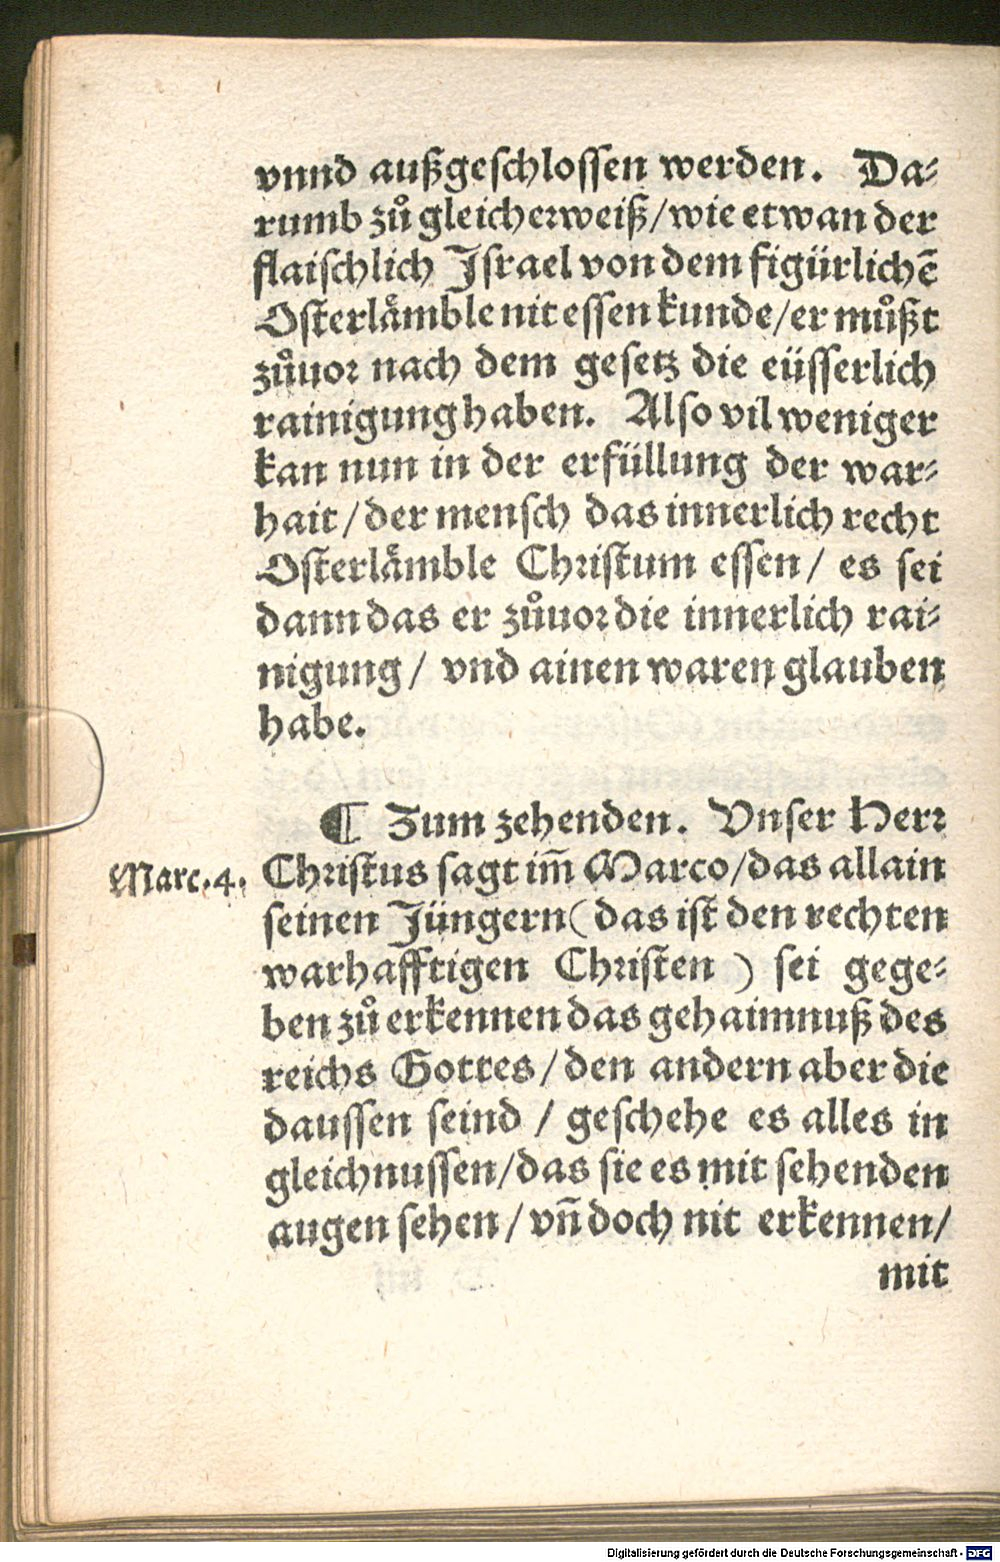 vnnd außgeschlossen werden. Da⸗
rumb zů gleicherweiß/wie etwan der
flaischlich Israel von dem figürlichẽ
Osterlåmble nit essen kunde/er můßt
zůuor nach dem gesetz die eüsserlich
rainigung haben. Also vil weniger
kan nun in der erfüllung der war⸗
hait/der mensch das innerlich recht
Osterlåmble Christum essen/ es sei
dann das er zůuor die innerlich rai⸗
nigung/ vnd ainen waren glauben
habe.
¶ Zum zehenden. Vnser Herr
Marc.4. Christus sagt im̃ Marco/das allain
seinen Jüngern(das ist den rechten
warhafftigen Christen) sei gege⸗
ben zů erkennen das gehaimnuß des
reichs Gottes/den andern aber die
daussen seind / geschehe es alles in
gleichnussen/das sie es mit sehenden
augen sehen/vñ doch nit erkennen/
mit
Digitalisierung gefördert durch die Deutsche Forschungsgemeinschaft - DFG